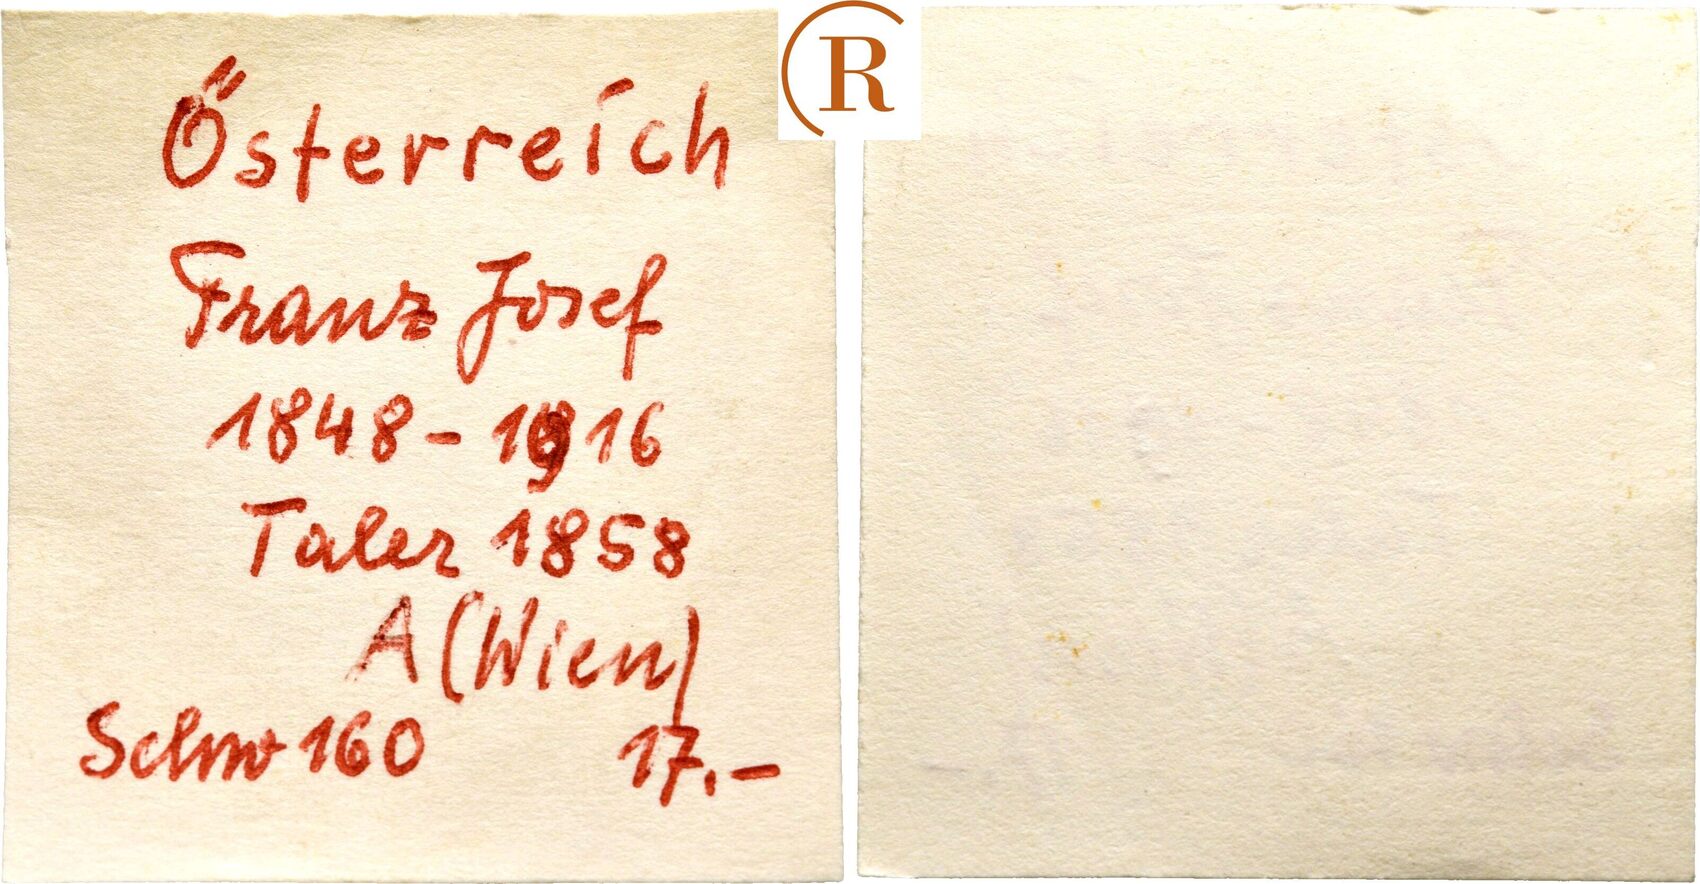 R
Österreich
Franz Josef
1848-1916
Taler 1858
A (Wien)
Schw 160 17.-